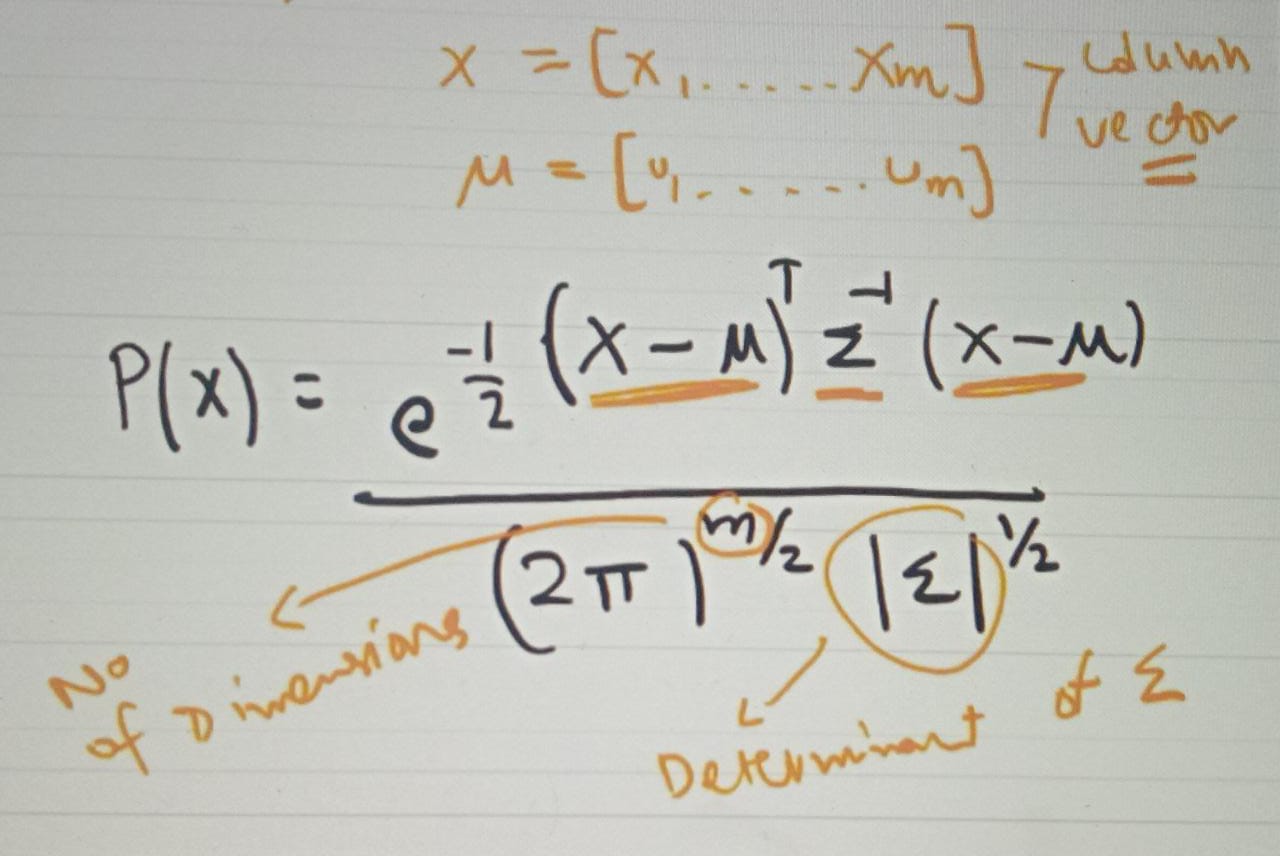 x = [x₁. . . . . . xm] } column vector
μ = [u₁. . . . . . um]
P(x) = e^(-1/2 (x-μ)ᵀ Σ⁻¹ (x-μ))
(2π)^(m/2) |Σ|^(1/2)
No of Dimensions
Determinant of Σ